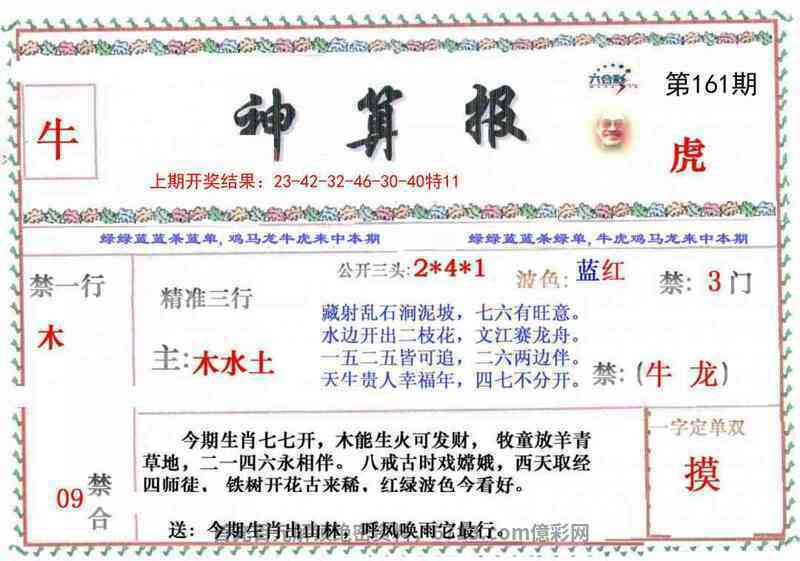 六合彩
第161期
牛
神算报
虎
上期开奖结果：23-42-32-46-30-40特11
绿绿蓝蓝杀蓝单，鸡马龙牛虎来中本期
绿绿蓝蓝杀绿单，牛虎鸡马龙来中本期
禁一行
木
精准三行
主：木水土
公开三头：2*4*1
波色：蓝红
禁：3门
藏射乱石涧泥坡，七六有旺意。
水边开出二枝花，文江赛龙舟。
一五二五皆可追，二六两边伴。
天生贵人幸福年，四七不分开。
禁：(牛 龙)
09
禁合
今期生肖七七开，木能生火可发财， 牧童放羊青
草地，二一四六永相伴。 八戒古时戏嫦娥，西天取经
四师徒， 铁树开花古来稀，红绿波色今看好。
送：今期生肖出山林，呼风唤雨它最行。
一字定单双
摸
com億彩网